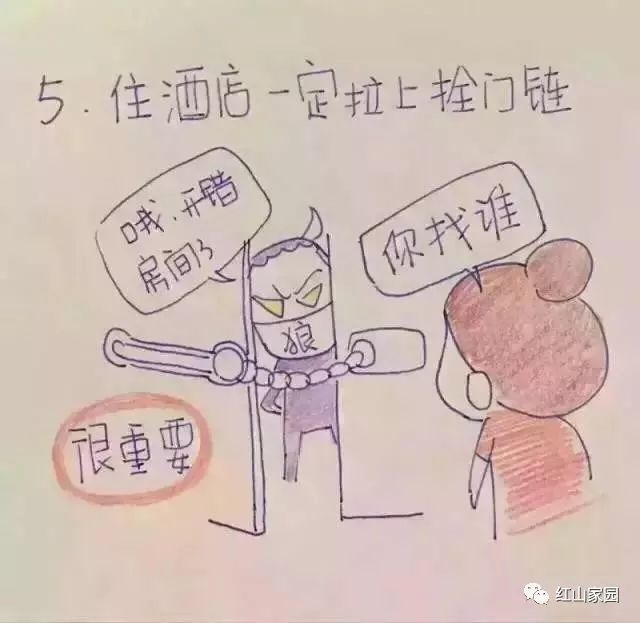 5.住酒店一定拉上拴门链
哦.开错
房间了
你找谁
狼
很重要
红山家园